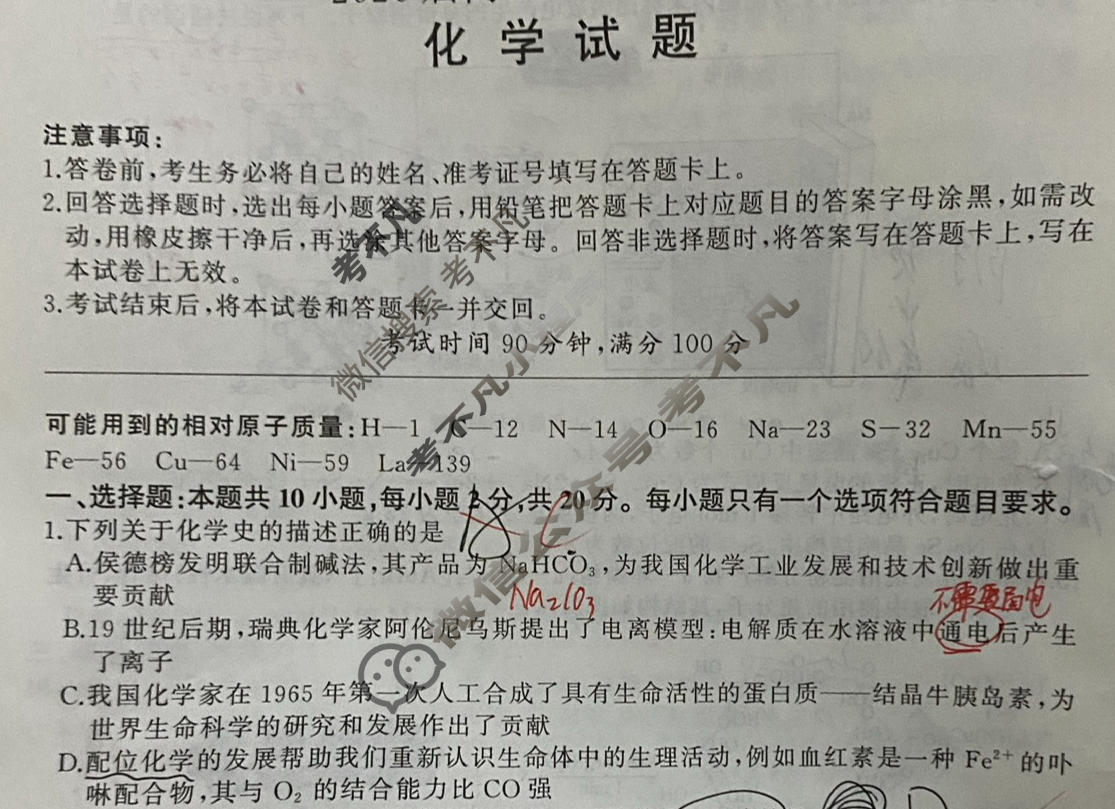 化学试题
注意事项:
1.答卷前,考生务必将自己的姓名、准考证号填写在答题卡上。
2.回答选择题时,选出每小题答案后,用铅笔把答题卡上对应题目的答案字母涂黑,如需改
动,用橡皮擦干净后,再选涂其他答案字母。回答非选择题时,将答案写在答题卡上,写在
本试卷上无效。
3.考试结束后,将本试卷和答题卡一并交回。
考试时间 90 分钟,满分 100 分
可能用到的相对原子质量:H—1 C—12 N—14 O—16 Na—23 S—32 Mn—55
Fe—56 Cu—64 Ni—59 La—139
一、选择题:本题共 10 小题,每小题 2 分,共 20 分。每小题只有一个选项符合题目要求。
1.下列关于化学史的描述正确的是
A.侯德榜发明联合制碱法,其产品为 NaHCO₃,为我国化学工业发展和技术创新做出重
要贡献
不需要通电
B.19 世纪后期,瑞典化学家阿伦尼乌斯提出了电离模型:电解质在水溶液中通电后产生
了离子
C.我国化学家在 1965 年第一次人工合成了具有生命活性的蛋白质——结晶牛胰岛素,为
世界生命科学的研究和发展作出了贡献
D.配位化学的发展帮助我们重新认识生命体中的生理活动,例如血红素是一种 Fe²⁺ 的卟
啉配合物,其与 O₂ 的结合能力比 CO 强
考不凡
微信搜索 考不凡
考不凡小
微信公众号 考不凡